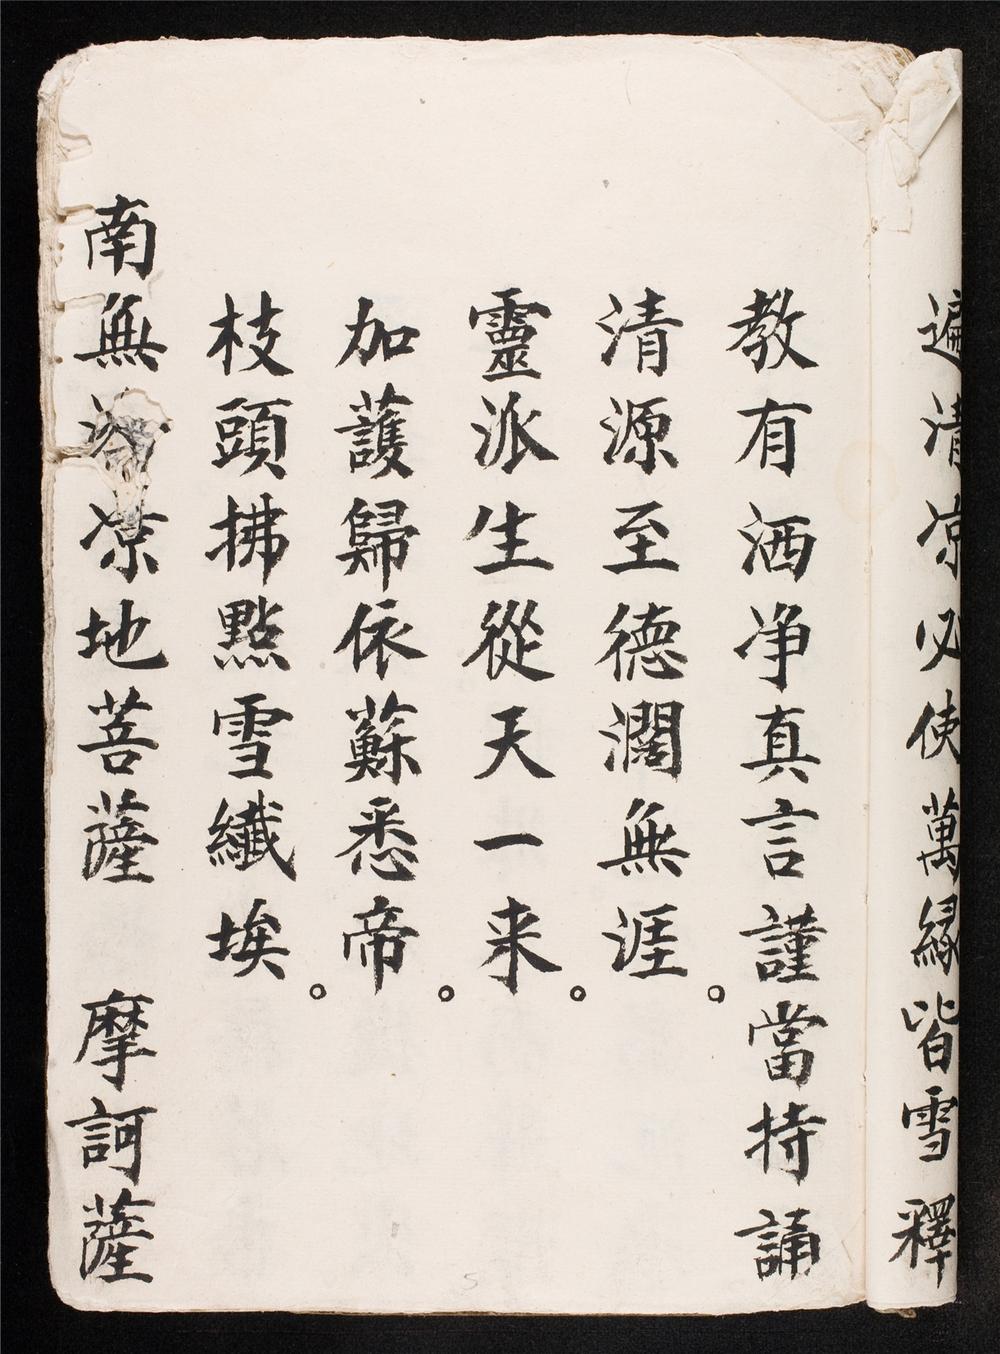 遍清凉必使萬緣皆雪釋
教有洒净真言謹當持誦
清源至德濶無涯。
靈派生從天一来。
加護歸依蘇悉帝。
枝頭拂點雪纖埃。
南無清凉地菩薩 摩訶薩